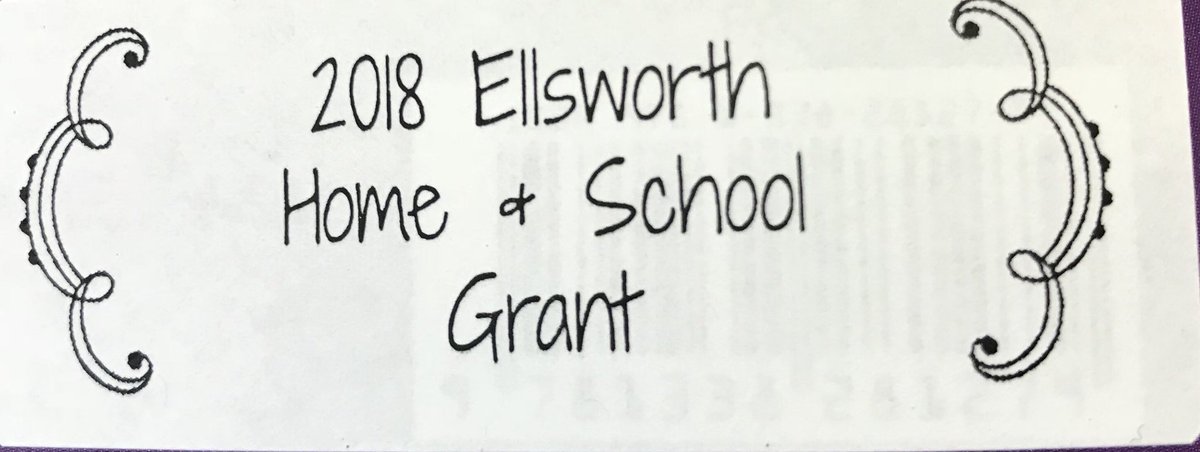 2018 Ellsworth
Home & School
Grant